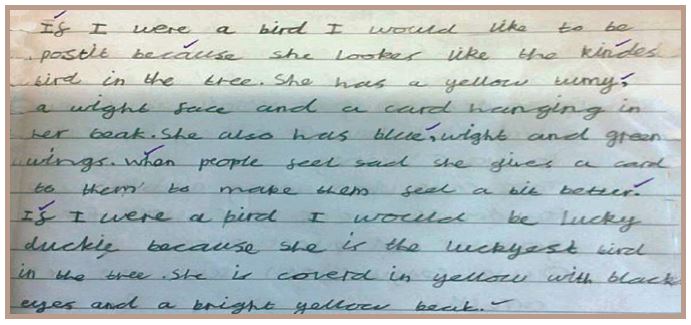 If I were a bird I would like to be
postit because she lookes like the kindes
bird in the tree. She has a yellow tumy,
a wight face and a card hanging in
her beak. She also has blue, wight and green
wings. When people feel sad she gives a card
to them to make them feel a bit better.
If I were a bird I would be lucky
duckie because she is the luckyest bird
in the tree. She is coverd in yellow with black
eyes and a bright yellow beak.